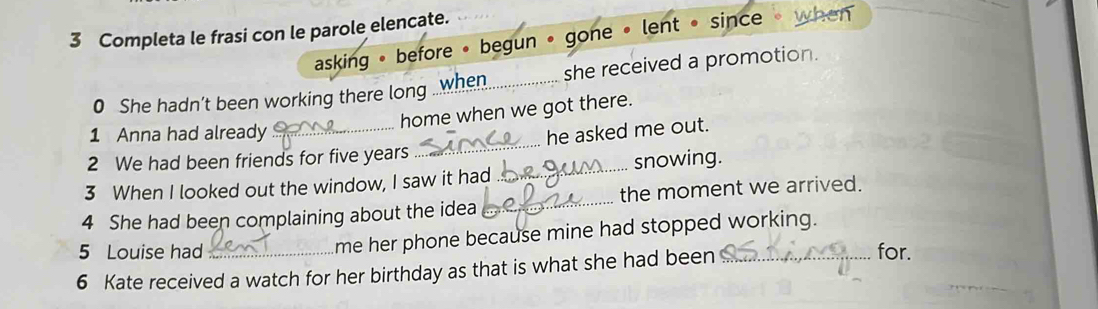 3 Completa le frasi con le parole elencate.
asking • before • begun • gone • lent • since • when
0 She hadn't been working there long when she received a promotion.
1 Anna had already gone home when we got there.
2 We had been friends for five years since he asked me out.
3 When I looked out the window, I saw it had begun snowing.
4 She had been complaining about the idea before the moment we arrived.
5 Louise had lent me her phone because mine had stopped working.
6 Kate received a watch for her birthday as that is what she had been asking for.